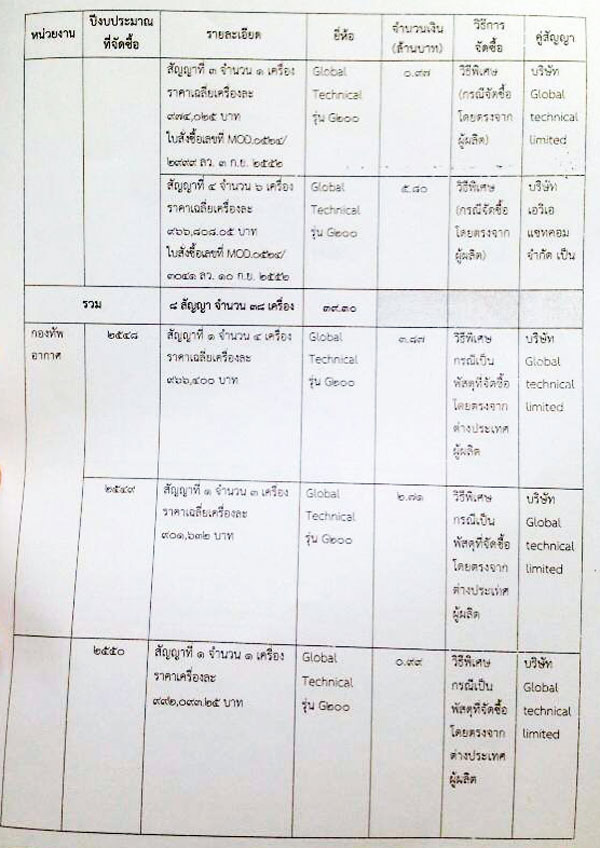 หน่วยงาน
ปีงบประมาณ
ที่จัดซื้อ
รายละเอียด
ยี่ห้อ
จำนวนเงิน
(ล้านบาท)
วิธีการ
จัดซื้อ
คู่สัญญา
สัญญาที่ ๓ จำนวน ๑ เครื่อง
ราคาเฉลี่ยเครื่องละ
๙๗๔,๐๒๕ บาท
ใบสั่งซื้อเลขที่ MOD.๐๕๒๔/
๒๙๙๙ ลว. ๓ ก.ย. ๒๕๕๒
Global
Technical
รุ่น G๒๐๐
๐.๙๗
วิธีพิเศษ
(กรณีจัดซื้อ
โดยตรงจาก
ผู้ผลิต)
บริษัท
Global
technical
limited
สัญญาที่ ๔ จำนวน ๖ เครื่อง
ราคาเฉลี่ยเครื่องละ
๙๖๖,๘๐๘.๐๕ บาท
ใบสั่งซื้อเลขที่ MOD.๐๕๒๔/
๓๐๔๑ ลว. ๑๐ ก.ย. ๒๕๕๒
Global
Technical
รุ่น G๒๐๐
๕.๘๐
วิธีพิเศษ
(กรณีจัดซื้อ
โดยตรงจาก
ผู้ผลิต)
บริษัท
เอวิเอ
แซทคอม
จำกัด เป็น
รวม
๘ สัญญา จำนวน ๓๘ เครื่อง
๓๙.๓๐
กองทัพ
อากาศ
๒๕๔๘
สัญญาที่ ๑ จำนวน ๔ เครื่อง
ราคาเฉลี่ยเครื่องละ
๙๖๖,๔๐๐ บาท
Global
Technical
รุ่น G๒๐๐
๓.๘๗
วิธีพิเศษ
กรณีเป็น
พัสดุที่จัดซื้อ
โดยตรงจาก
ต่างประเทศ
ผู้ผลิต
บริษัท
Global
technical
limited
๒๕๔๙
สัญญาที่ ๑ จำนวน ๓ เครื่อง
ราคาเฉลี่ยเครื่องละ
๙๐๑,๖๓๒ บาท
Global
Technical
รุ่น G๒๐๐
๒.๗๑
วิธีพิเศษ
กรณีเป็น
พัสดุที่จัดซื้อ
โดยตรงจาก
ต่างประเทศ
ผู้ผลิต
บริษัท
Global
technical
limited
๒๕๕๐
สัญญาที่ ๑ จำนวน ๑ เครื่อง
ราคาเครื่องละ
๙๙๒,๐๙๓.๒๕ บาท
Global
Technical
รุ่น G๒๐๐
๐.๙๙
วิธีพิเศษ
กรณีเป็น
พัสดุที่จัดซื้อ
โดยตรงจาก
ต่างประเทศ
ผู้ผลิต
บริษัท
Global
technical
limited